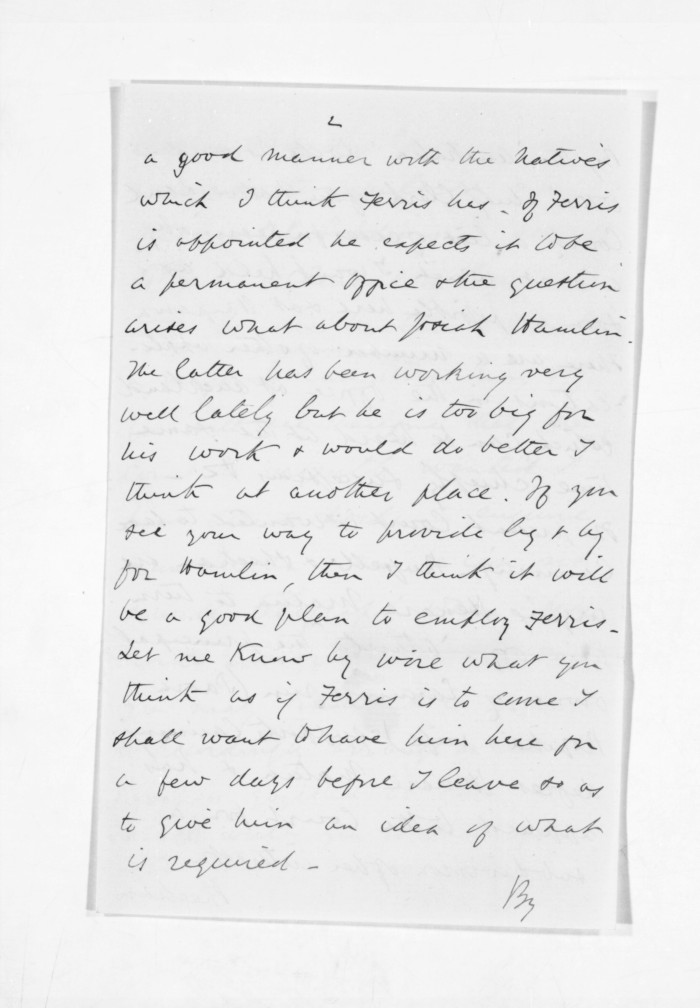 2
a good manner with the Natives
which I think Ferris has - If Ferris
is appointed he expects it to be
a permanent office & the question
arises what about Josiah Hamlin.
The latter has been working very
well lately but he is too big for
his work & would do better I
think at another place. If you
see your way to provide by & by
for Hamlin, then I think it will
be a good plan to employ Ferris -
Let me know by wire what you
think as if Ferris is to come I
shall want to have him here for
a few days before I leave so as
to give him an idea of what
is required -
By